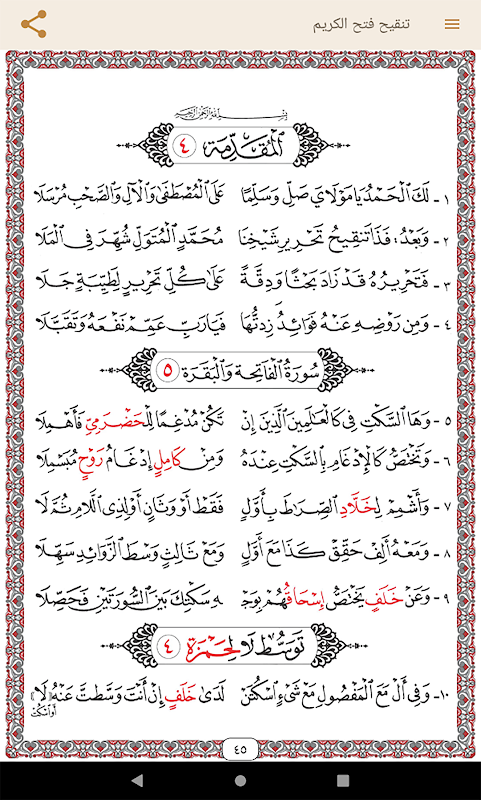 تنقيح فتح الكريم
بِسْمِ اللَّهِ الرَّحْمَٰنِ الرَّحِيمِ
المُقَدِّمَة ٤
١- لَكَ الْحَمْدُ يَا مَوْلَايَ صَلِّ وَسَلِّمَا عَلَى الْمُصْطَفَى وَالْآلِ وَالصَّحْبِ مُرْسَلَا
٢- وَبَعْدُ: فَذَا تَنْقِيحُ تَحْرِيرِ شَيْخِنَا مُحَمَّدٍ الْمُتَوَلِّ شُهِرَ فِي الْمَلَا
٣- فَتَحْرِيرُهُ قَدْ زَادَ بَحْثًا وَدِقَّةً عَلَى كُلِّ تَحْرِيرٍ لِطَيِّبَةٍ جَلَا
٤- وَمِن رَّوْضِهِ عَنْهُ فَوَائِدُ زِدتُّهَا فَيَارَبِّ عَمِّمْ نَفْعَهُ وَتَقَبَّلَا
سُورَةُ الْفَاتِحَة وَالْبَقَرَة ٥
٥- وَهَا السَّكْتِ فِي كَالْعَالَمِينَ الَّذِينَ إِنْ تَكُنْ مُدْغِمًا لِلْحَضْرَمِيِّ فَأَهْمِلَا
٦- وَتَخْتَصُّ كَالْإِدْغَامِ بِالسَّكْتِ عِنْدَهُ وَمِن كَامِلٍ إِدْغَامُ رَوْحٍ مُبَسْمِلَا
٧- وَأَشْمِمْ لِخَلَّادِ الصِّرَاطَ بِأَوَّلٍ فَقَطْ أَوْ وَثَانٍ أَوْ لِذِي اللَّامِ ثُمَّ لَا
٨- وَمَعْهُ أَلِفْ حَقِّقْ كَذَا مَعَ أَوَّلٍ وَمَعْ ثَالِثٍ وَسْطَ الزَّوَائِدِ سَهِّلَا
٩- وَعَنْ خَلَفٍ يَخْتَصُّ إِسْحَاقُهُمْ بِوَجْـ ـهِ سَكْتِكَ بَيْنَ السُّورَتَيْنِ فَحَصِّلَا
تَوَسُّطُ لَا لِحَمْزَة ٤
١٠- وَفِي أَلْ مَعَ الْمَفْصُولِ مَعْ شَيْءٍ اسْكُتَنْ لَدَى خَلَفٍ إِنْ أَنْتَ وَسَّطْتَ عَنْهُ لَا
٤٥